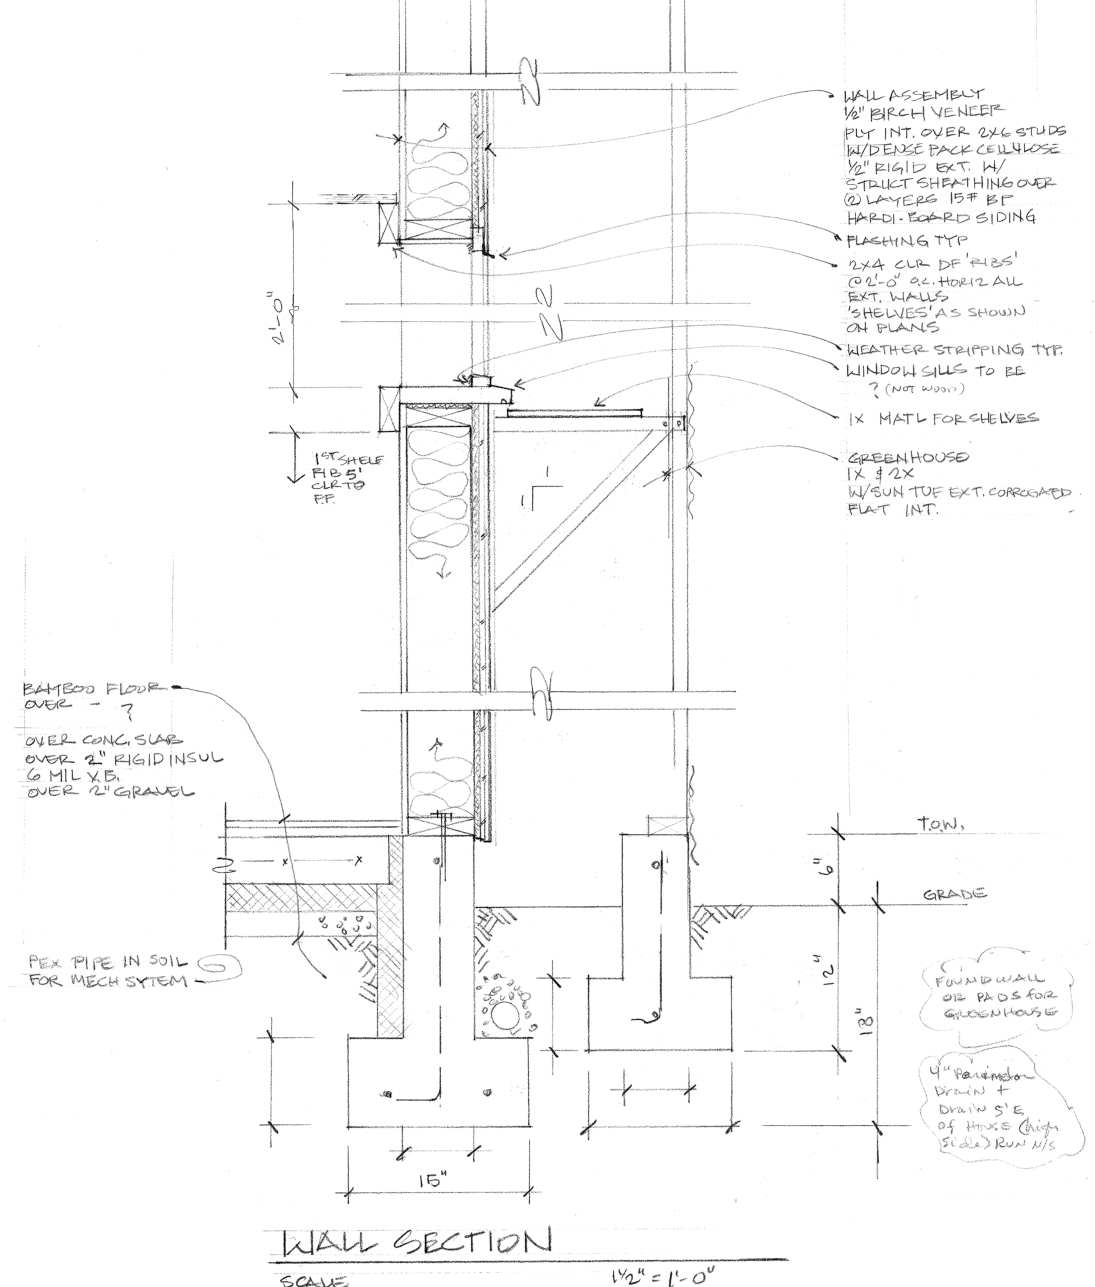 WALL ASSEMBLY
1/2" BIRCH VENEER
PLY INT. OVER 2X6 STUDS
W/DENSE PACK CELLULOSE
1/2" RIGID EXT. W/
STRUCT SHEATHING OVER
(2) LAYERS 15# BP
HARDI-BOARD SIDING
FLASHING TYP
2X4 CLR DF 'RIBS'
@ 2'-0" O.C. HORIZ ALL
EXT. WALLS
'SHELVES' AS SHOWN
ON PLANS
WEATHER STRIPPING TYP.
WINDOW SILLS TO BE
? (NOT WOOD)
1X MATL FOR SHELVES
GREENHOUSE
1X & 2X
W/SUN TUF EXT. CORROGATED
FLAT INT.
2'-0"
1ST SHELF
RIB 5'
CLR TO
F.F.
BAMBOO FLOOR
OVER - ?
OVER CONC. SLAB
OVER 2" RIGID INSUL
6 MIL V.B.
OVER 2" GRAVEL
PEX PIPE IN SOIL
FOR MECH SYTEM
T.O.W.
6"
GRADE
12"
18"
FOUND WALL
OR PADS FOR
GREENHOUSE
4" Perimeter
Drain +
Drain 5' E
of House (high
side) RUN N/S
15"
WALL SECTION
SCALE 1 1/2" = 1'-0"